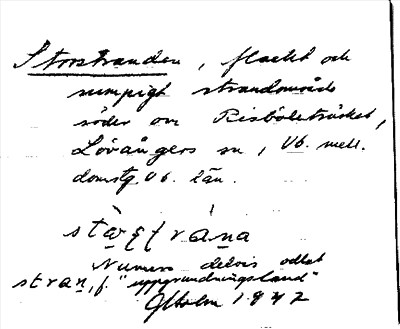 Storstranden, flackt och
sumpigt strandområde
söder om Risböleträsket,
Lövångers sn, Vb. mell.
domstg Vb. län.
Numera delvis odlat
stran, f. "uppgrundningsland"
Gtholm 1942